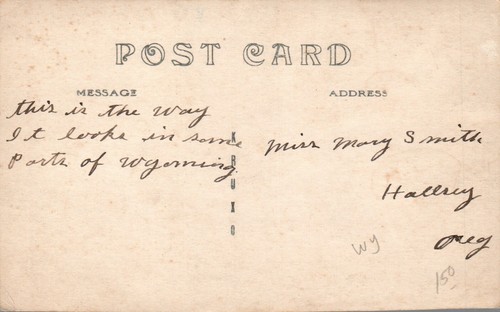 POST CARD
MESSAGE
ADDRESS
this is the way
It looks in some
Parts of Wyoming.
KRUXO
Miss Mary Smith
Halsey
Oreg
WY
150